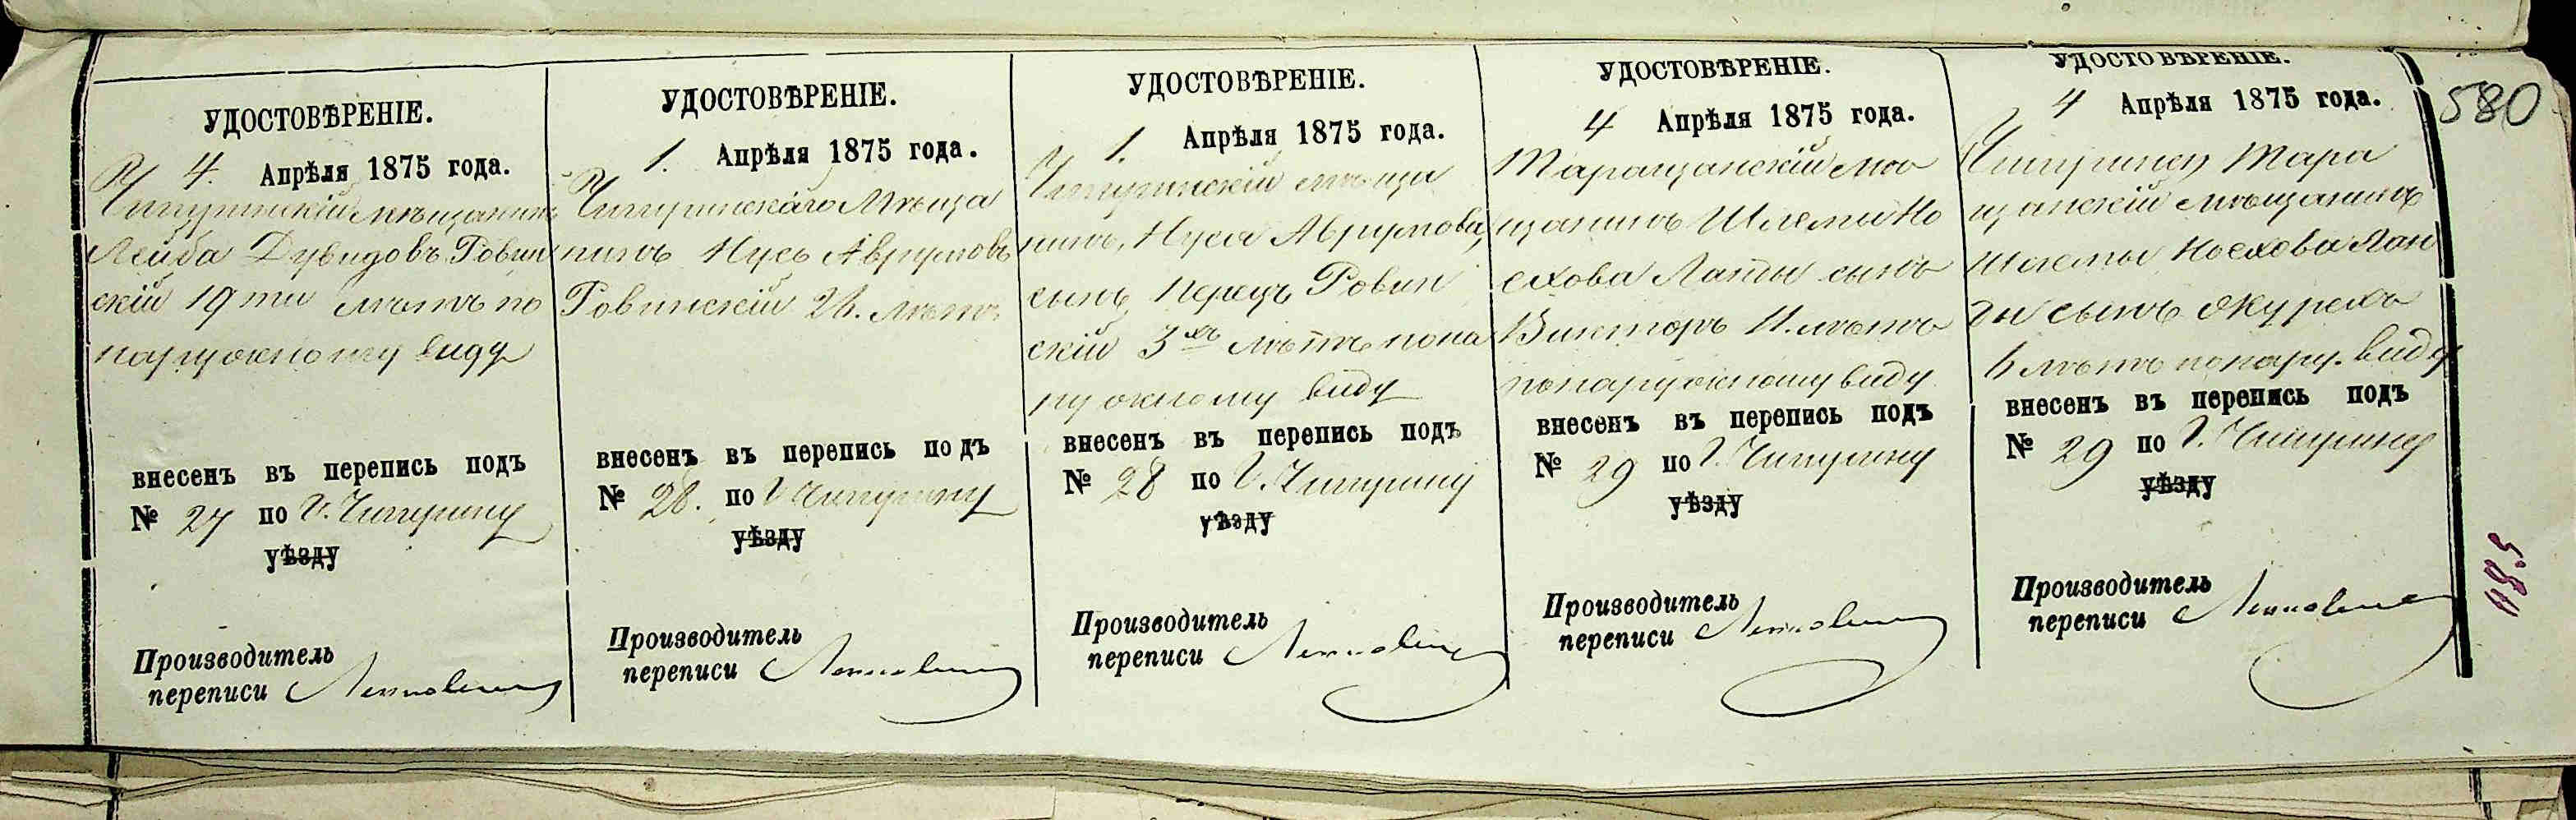 580
УДОСТОВѢРЕНІЕ.
4. Апрѣля 1875 года.
Чигиринскій мѣщанинъ
Лейба Дувидовъ Ровин
скій 19 ти лѣтъ по
наружному виду
внесенъ въ перепись подъ
№ 27 по Г. Чигирину
уѣзду
Производитель
переписи
УДОСТОВѢРЕНІЕ.
1. Апрѣля 1875 года.
Чигиринскаго Мѣща
нинъ Нусь Аврумовъ
Ровинскій 26. лѣтъ
внесенъ въ перепись подъ
№ 28. по Г Чигирину
уѣзду
Производитель
переписи
УДОСТОВѢРЕНІЕ.
1. Апрѣля 1875 года.
Чигиринскій мѣща
нинъ, Нуса Аврумова,
сынъ Перецъ Ровин
скій 3хъ лѣтъ пона
ружному виду
внесенъ въ перепись подъ
№ 28 по Г. Чигирину
уѣзду
Производитель
переписи
УДОСТОВѢРЕНІЕ.
4 Апрѣля 1875 года.
Таращанскій мѣ
щанинъ Шлемы Но
ехова Ланды сынъ
Викторъ 11. лѣтъ
понаружному виду
внесенъ въ перепись подъ
№ 29 по Г. Чигирину
уѣзду
Производитель
переписи
УДОСТОВѢРЕНІЕ.
4 Апрѣля 1875 года.
Тара
щанскій мѣщанинъ
Шлемы Ноехова Лан
ды сынъ
лѣтъ понару. виду
внесенъ въ перепись подъ
№ 29 по Г. Чигирину
уѣзду
Производитель
переписи